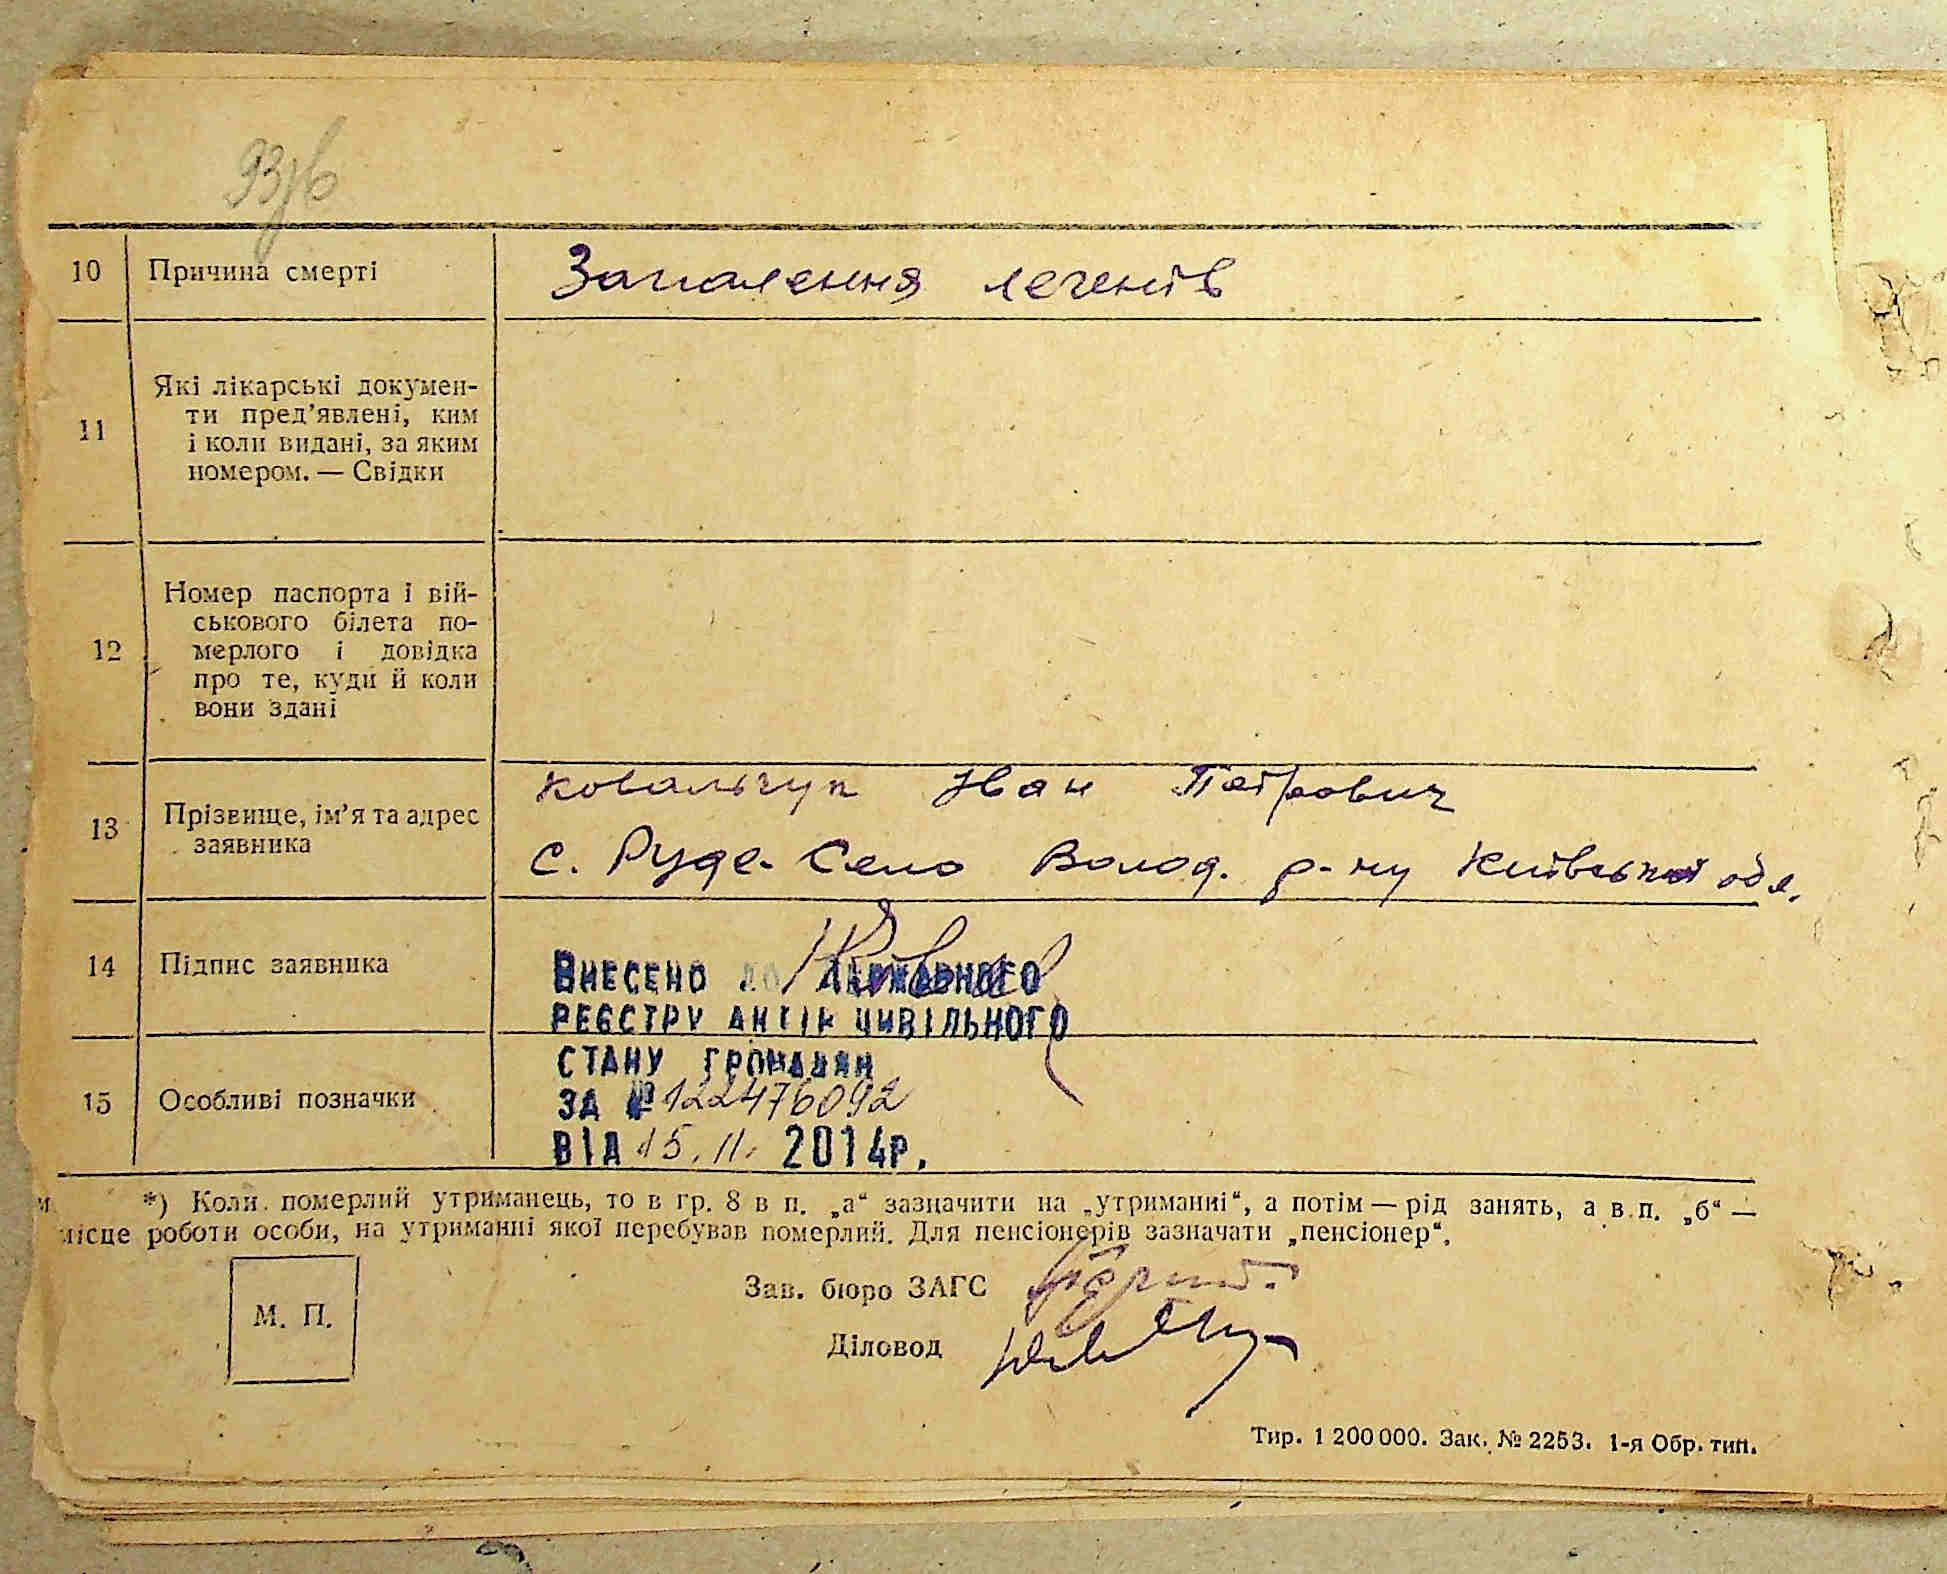 93/б
10 Причина смерті Запалення легенів
11 Які лікарські докумен-
ти пред’явлені, ким
і коли видані, за яким
номером. — Свідки
12 Номер паспорта і вій-
ськового білета по-
мерлого і довідка
про те, куди й коли
вони здані
13 Прізвище, ім’я та адрес
заявника
Ковальчук Іван Петрович
с. Руде-Село Волод. р-ну Київської обл.
14 Підпис заявника
ВНЕСЕНО ДО ДЕРЖАВНОГО
РЕЄСТРУ АКТІВ ЦИВІЛЬНОГО
СТАНУ ГРОМАДЯН
ЗА № 122476092
ВІД 15.11. 2014Р.
15 Особливі позначки
*) Коли померлий утриманець, то в гр. 8 в п. „а“ зазначити на „утриманні“, а потім — рід занять, а в п. „б“ —
місце роботи особи, на утриманні якої перебував померлий. Для пенсіонерів зазначати „пенсіонер“.
М. П.
Зав. бюро ЗАГС
Діловод
Тир. 1 200 000. Зак. № 2253. 1-я Обр. тип.